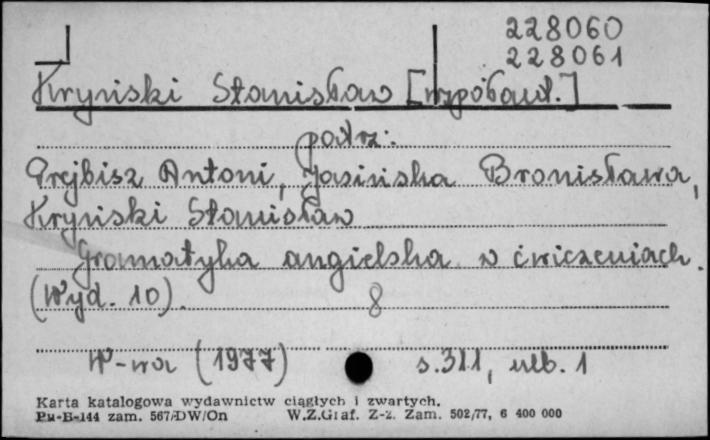 228060
228061
Kryński Stanisław [współaut.]
patrz:
Prejbisz Antoni, Jasińska Bronisława,
Kryński Stanisław
Gramatyka angielska w ćwiczeniach.
(Wyd. 10). 8
W-wa (1977) s. 311, nlb. 1
Karta katalogowa wydawnictw ciągłych i zwartych.
Pu-B-144 zam. 567/DW/On W.Z.Graf. Z-2. Zam. 502/77, 6 400 000